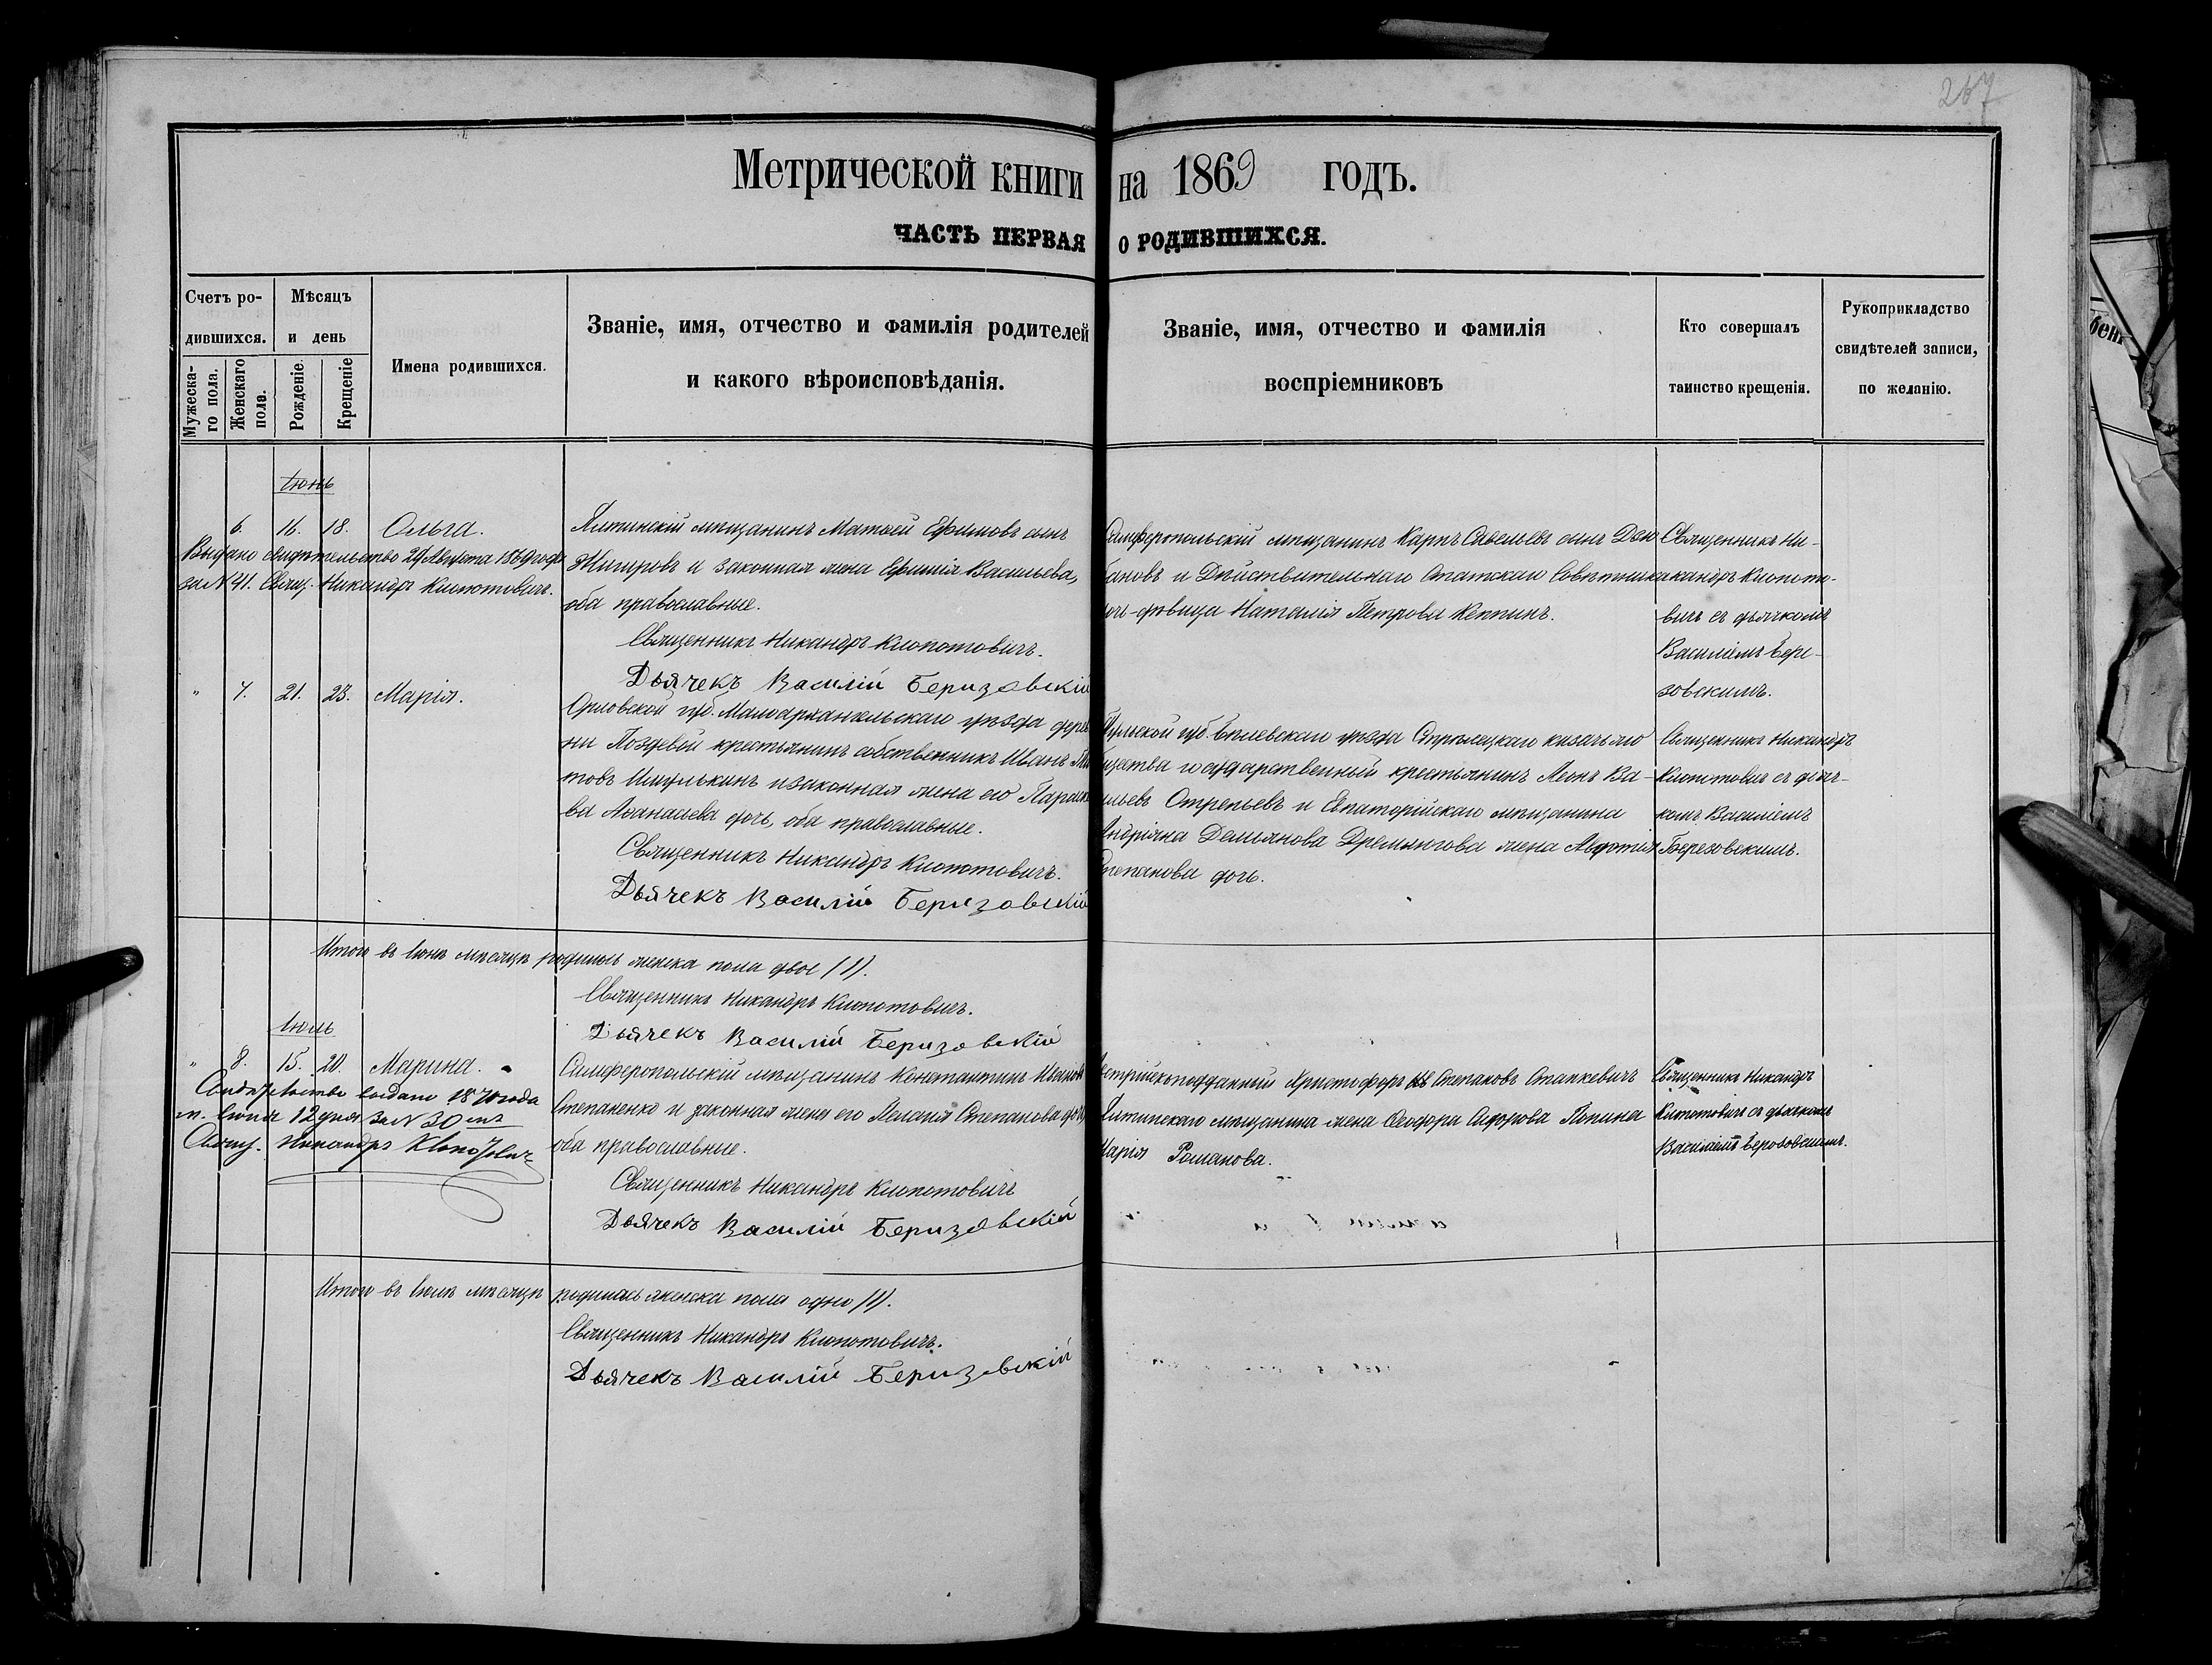 267
Метрической книги на 1869 годъ.
ЧАСТЬ ПЕРВАЯ О РОДИВШИХСЯ.
Счетъ ро-
дившихся.
Мужеска-
го пола.
Женскаго
пола.
Мѣсяцъ
и день
Рожденіе.
Крещеніе
Имена родившихся.
Званіе, имя, отчество и фамилія родителей
и какого вѣроисповѣданія.
Званіе, имя, отчество и фамилія
воспріемниковъ
Кто совершалъ
таинство крещенія.
Рукоприкладство
свидѣтелей записи,
по желанію.
Іюнь
6. 16. 18. Ольга.
Выдано свидѣтельство 29 Августа 1869 года
за N 41. Свящ. Никандръ Клопотовичъ.
Ялтинскій мѣщанинъ Матѳей Ефимовъ сынъ
Жигировъ и законная жена Ефимія Васильева,
оба православные.
Священникъ Никандръ Клопотовичъ.
Дьячекъ Василій Беризовскій
Симферопольскій мѣщанинъ Карпъ Савельевъ сынъ
и Дѣйствительнаго Статскаго Совѣтника
дочь-дѣвица Наталія Петрова Кеппинъ.
Священникъ Ни-
кандръ Клопото-
вичъ съ дьячкомъ
Василіемъ Бере-
зовскимъ.
" 7. 21. 23. Марія.
Орловской губ. Малоархангельскаго уѣзда дерев
ни Поздевой крестьянинъ собственникъ Иванъ
товъ и законная жена его Параске
ва Аѳанасьева дочь, оба православные.
Священникъ Никандръ Клопотовичъ.
Дьячекъ Василій Беризовскій
Тульской губ. Бѣлевскаго уѣзда Стрѣлецкаго казачьяго
общества государственный крестьянинъ Леонъ Ва-
сильевъ Отрепьевъ и Евпаторійскаго мѣщанина
Андріяна Демьянова Дремлюгова жена Авдотія
Степанова дочь.
Священникъ Никандръ
Клопотовичъ съ дьяч-
комъ Василіемъ
Березовскимъ.
Итого въ Іюнѣ мѣсяцѣ родилось женска пола двое
Священникъ Никандръ Клопотовичъ.
Дьячекъ Василій Беризовскій
Іюль
" 8. 15. 20. Марина.
Свидѣтельство выдано 1870 года
м. Іюня 12 дня за N 30мъ
Свящ. Никандръ Клопотовичъ
Симферопольскій мѣщанинъ Констаптинъ Ивановъ
Степаненко и законная жена его Пелагія Степанова дочь
оба православные.
Священникъ Никандръ Клопотовичъ
Дьячекъ Василій Беризовскій
Австрійскоподданный Христофоръ Степановъ Станкевичъ
Ялтинскаго мѣщанина жена Ѳеодора Сидорова Попина
Марія Романова.
Священникъ Никандръ
Клопотовичъ съ дьячкомъ
Василіемъ Березовскимъ.
Итого въ Іюлѣ мѣсяцѣ родилось женска пола одно /1/.
Священникъ Никандръ Клопотовичъ.
Дьячекъ Василій Беризовскій